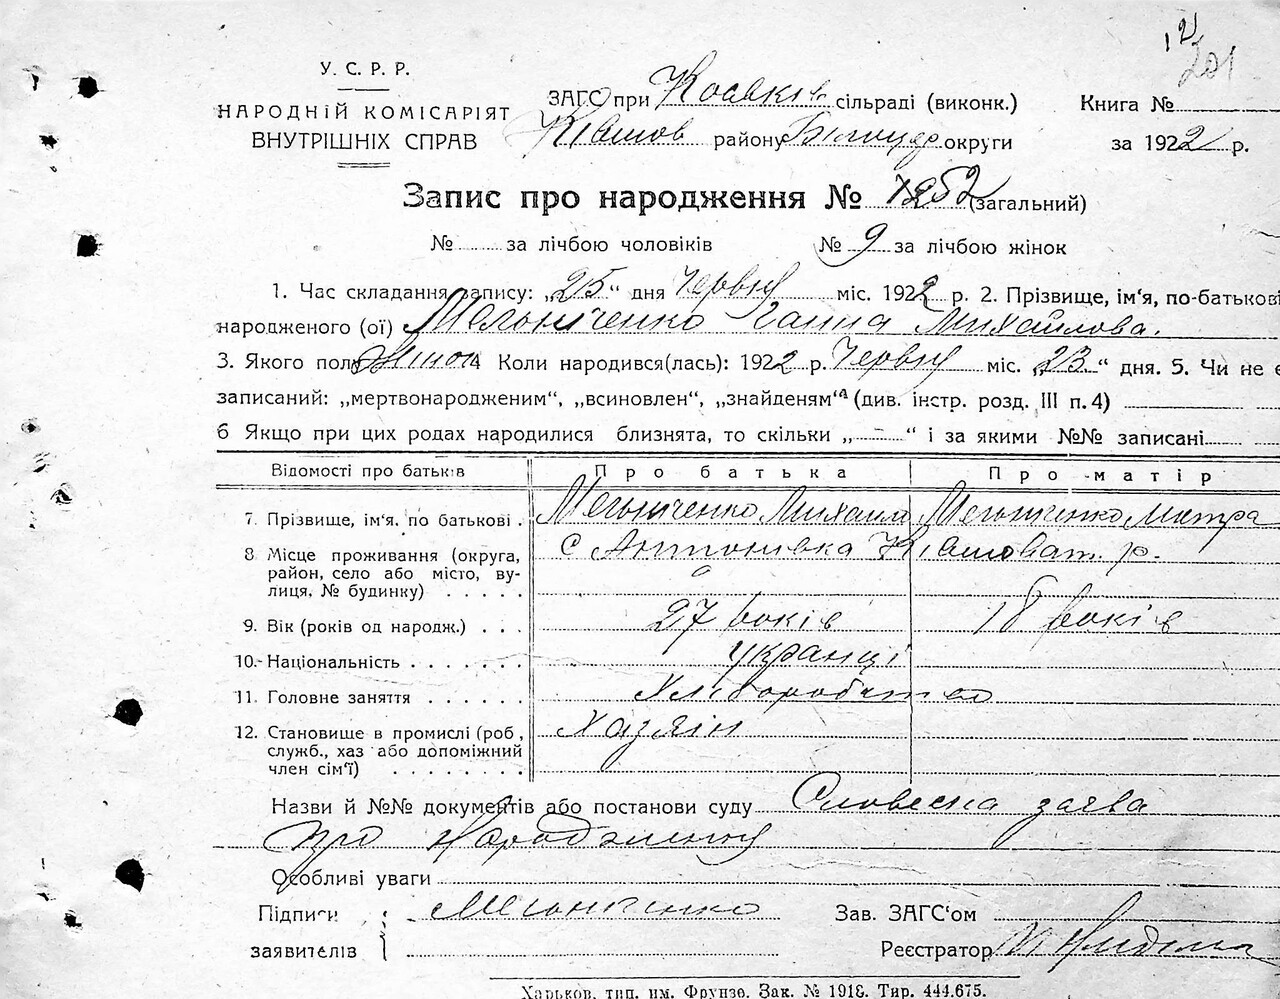 12
201
У. С. Р. Р.
НАРОДНІЙ КОМІСАРІЯТ
ВНУТРІШНІХ СПРАВ
ЗАГС при сільраді (виконк.)
району Білоцер округи
Книга №
за 1922 р.
Запис про народження № 1252 (загальний)
№ за лічбою чоловіків № 9 за лічбою жінок
1. Час складання запису: „25“ дня Червня міс. 1922 р. 2. Прізвище, ім‘я, по-батькові
народженого (ої) Мельніченко Ганна Михайлова.
3. Якого пол жіноч 4 Коли народився(лась): 1922 р. Червня міс. „23“ дня. 5. Чи не є
записаний: „мертвонародженим“, „всиновлен“, „знайденям“ (див. інстр. розд. III п. 4)
6 Якщо при цих родах народилися близнята, то скільки „ “ і за якими №№ записані
Відомості про батьків Про батька Про матір
7. Прізвище, ім‘я. по батькові. Мельніченко Михаил Мельніченко Мотра
8 Місце проживання (округа, с Антонівка р.
район, село або місто, ву-
лиця, № будинку)
9. Вік (років од народж.) 27 років 18 років
10. Національність укранці
11. Головне заняття Хліборобство
12. Становище в промислі (роб, Хазяін
служб., хаз або допоміжний
член сім‘ї)
Назви й №№ документів або постанови суду Словесна заява
про народження
Особливі уваги
Підписи Мельниченко
заявителів
Зав. ЗАГС‘ом
Реєстратор
Харьков, тип. им. Фрунзе. Зак. № 1918. Тир. 444.675.